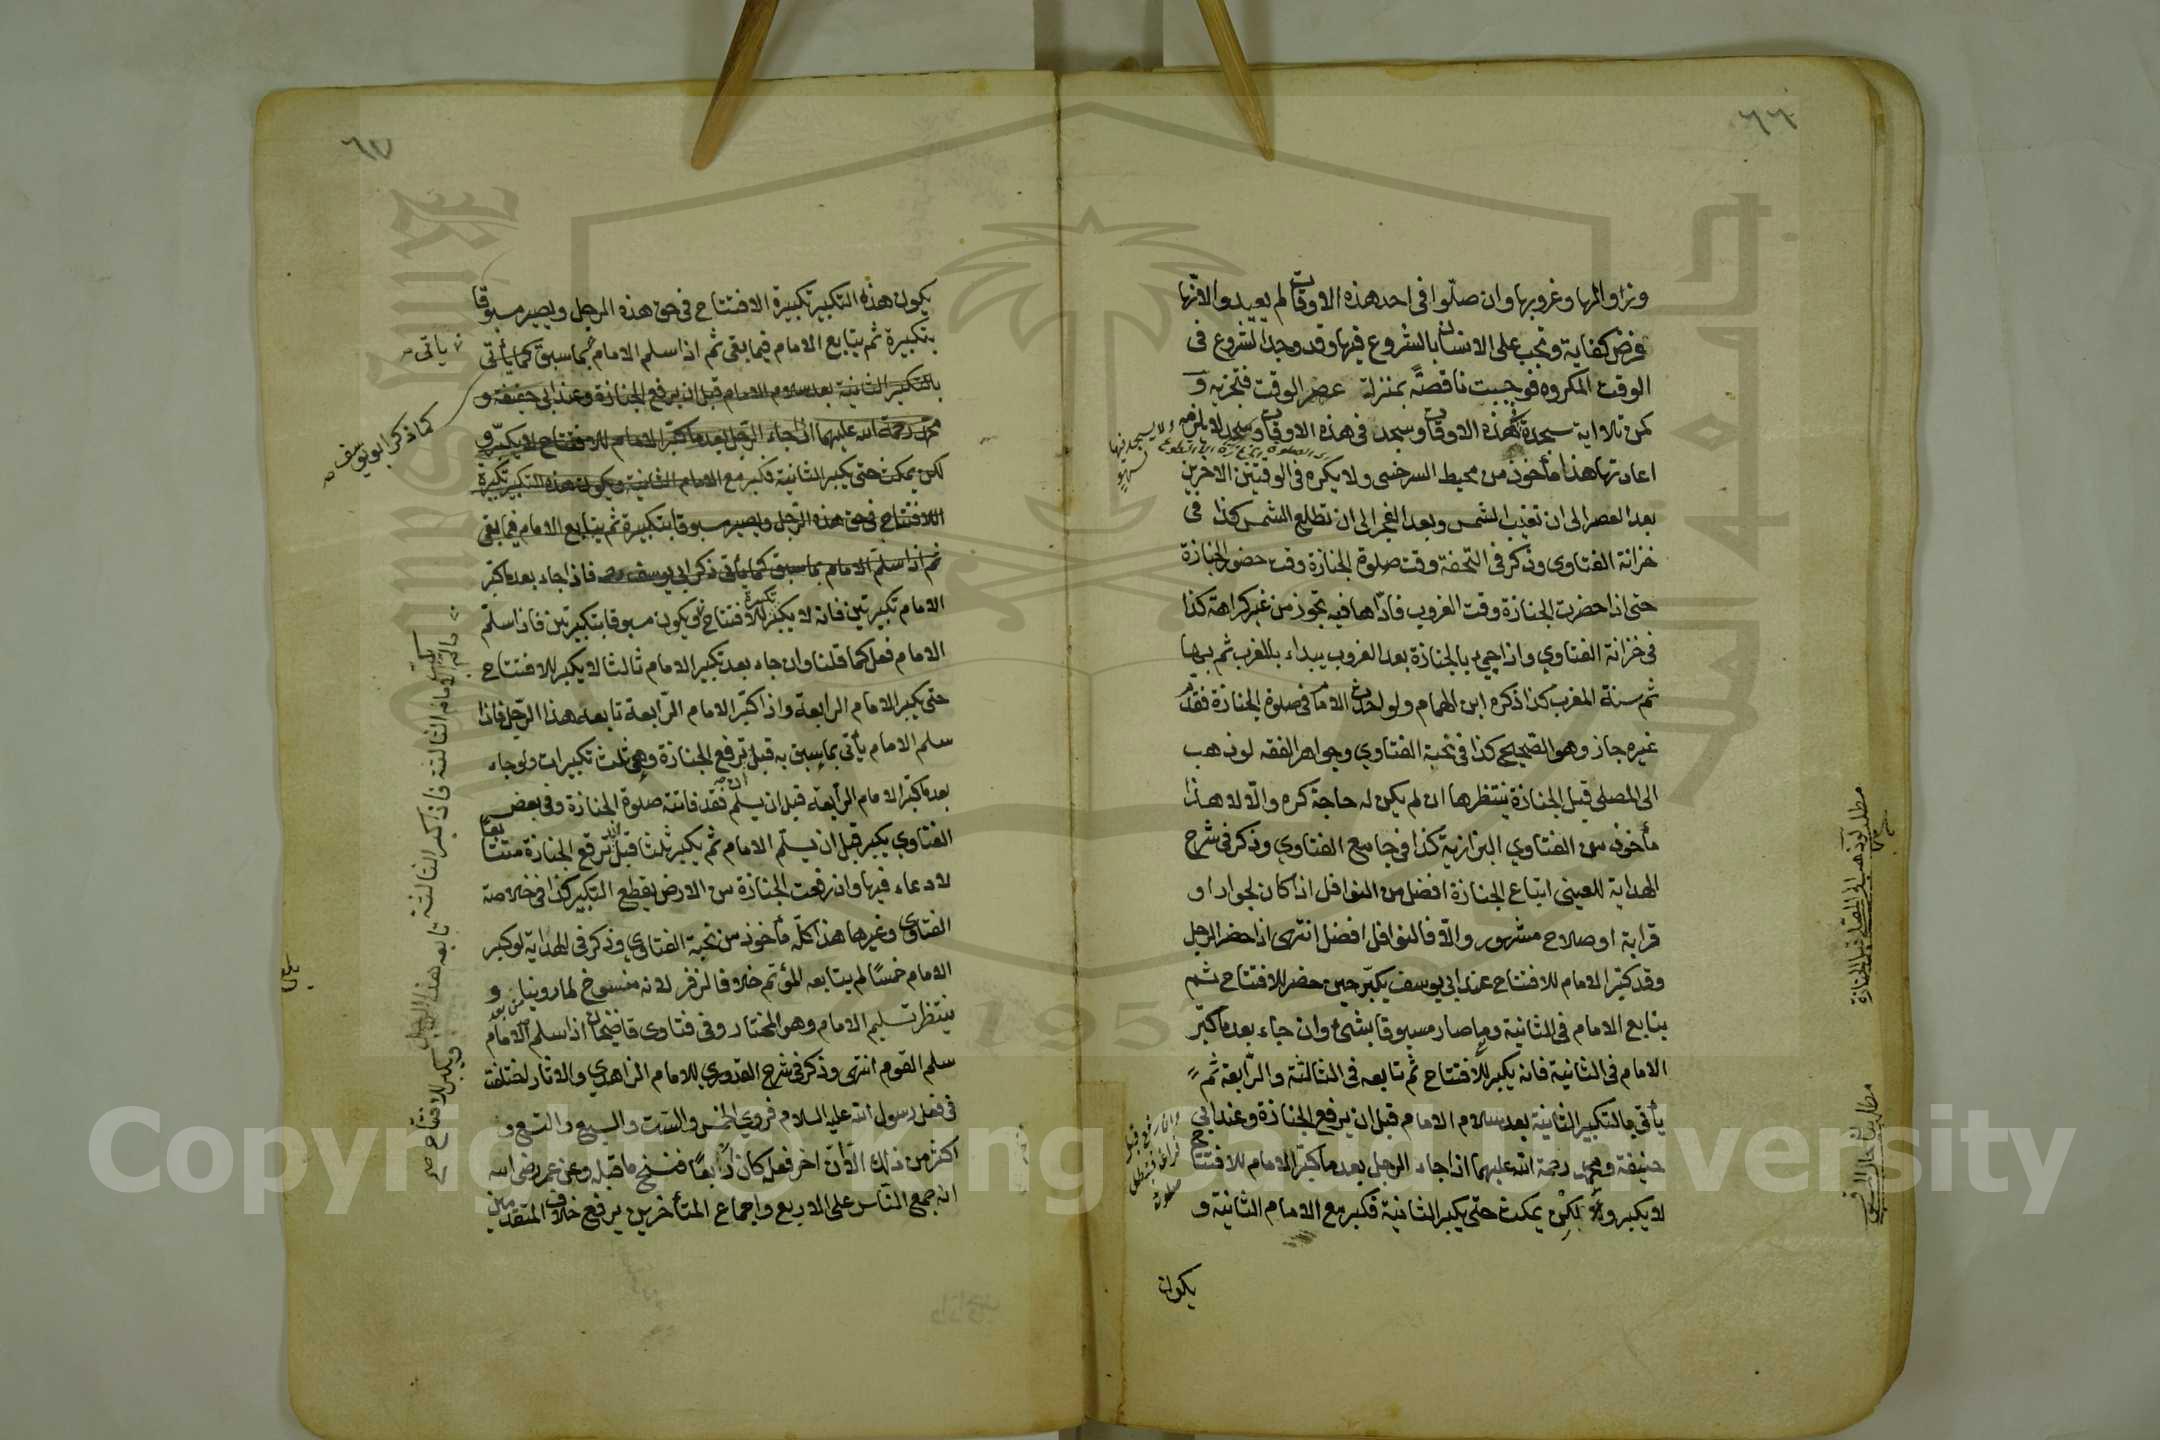 ٦٦
وزوالها وغروبها وان صلّوا فى احد هذه الاوقات لم يعيدوا لانها
فرض كفاية وتجب على الانسان بالشروع فيها وقد وجد الشروع فى
الوقت المكروه فوجبت ناقصةً بمنزلة عصر الوقت فتجزيه و
كمن تلا اية سجدة فى هذه الاوقات وسجد فى هذه الاوقات وسجد لا يلزمه
ولا يسجد فيها
سهو
اعادتها هذا مأخوذ من محيط السرخسى ولا يكره فى الوقتين الاخرين
بعد العصر الى ان تغرب الشمس وبعد الفجر الى ان تطلع الشمس كذا فى
خزانة الفتاوى وذكر فى التحفة وقت صلوة الجنازة وقت حضور الجنازة
حتى اذا حضرت الجنازة وقت الغروب فادّاها فيه تجوز من غير كراهة كذا
فى خزانة الفتاوي واذا جيء بالجنازة بعد الغروب يبداء بالمغرب ثم بها
ثم سنة المغرب كذا ذكره ابن الهمام ولو احدث الامام فى صلوة الجنازة فقدّم
غيره جاز وهو الصحيح كذا فى نخبة الفتاوي وجواهر الفقه لو ذهب
الى المصلى قبل الجنازة ينتظرها ان لم يكن له حاجة كره والّا لا هذا
مأخوذ من الفتاوي البزازية كذا فى جامع الفتاوي وذكر فى شرح
الهداية للعينى اتباع الجنازة افضل من النوافل اذا كان لجوار او
قرابة او صلاح مشهور والّا فالنوافل افضل انتهى اذا حضر الرجل
وقد كبّر الامام للافتتاح عند ابى يوسف يكبّر حين حضر للافتتاح ثم
يتابع الامام فى الثانية وما صار مسبوقا بشئ وان جاء بعد ما كبّر
الامام فى الثانية فانه يكبر للافتتاح ثم تابعه فى الثالثة والرّابعة ثم
يأتى بالتكبير الثانية بعد سلام الامام قبل ان يرفع الجنازة وعند ابى
حنيفة ومحمد رحمة الله عليهما اذا جاء الرجل بعد ما كبّر الامام للافتتاح
لا يكبر و لكن يمكث حتّى يكبر الثانية فكبر مع الامام الثانية و
يكون
مطلب لو ذهب الى المصلى قبل الجنازة
٦٧
يكون هذه التكبير تكبيرة الافتتاح فى حق هذه الرجل ويصير مسبوقا
بتكبيرة ثم يتابع الامام فيما بقى ثم اذا سلم الامام بما سبق كما يأتى
ياتى صح
كما ذكر ابو يوسف صح
بالتكبير الثانية بعد سلام الامام قبل ان يرفع الجنازة وعند ابى حنيفة و
محمد رحمة الله عليهما اذا جاء الرّجل بعد ما كبّر الامام للافتتاح لا يكبّر و
لكن يمكث حتى يكبر الثانية فكبر مع الامام الثانية ويكون هذه التكبير تكبيرة
الافتتاح فى حق هذه الرّجل ويصير مسبوقا بتكبيرة ثم يتابع الامام فيما بقى
ثم اذا سلّم الامام بما سبق كما يأتى ذكر ابى يوسف فاذا جاء بعد ما كبّر
الامام تكبيرتين فانه لا يكبر للافتتاح ويكون مسبوقا بتكبيرتين فاذا سلّم
الامام فعل كما قلنا وان جاء بعد تكبير الامام ثالثا لا يكبر للافتتاح
حتى يكبر الامام الرابعة واذا كبّر الامام الرّابعة تابعه هذا الرّجل فاذا
سلم الامام يأتى بما سبق به قبل ان ترفع الجنازة وهى ثلث تكبيرات ولو جاء
بعد ما كبّر الامام الرّابعة قبل ان يسلّم فقد فاتته صلوة الجنازة وفى بعض
الفتاوي يكبر قبل ان يسلّم الامام ثم يكبر ثلثا قبل ان ترفع الجنازة متتابعا
لا دعاء فيها وان رفعت الجنازة من الارض يقطع التكبير كذا فى خلاصة
الفتاوى وغيرها هذا كلّه مأخوذ من نخبة الفتاوي وذكر فى الهداية لو كبر
الامام خمسًا لم يتابعه المؤتم خلافا لزفر لانه منسوخ لما روينا و
ينتظر تسليم الامام وهو المختار وفى فتاوى قاضيخان اذا سلم الامام
سلم القوم انتهى وذكر فى شرح القدوري للامام الزاهدي والاثار اختلفت
فى فعل رسول الله عليه السلام فروي الخمس والست والسبع والتسع و
اكثر من ذلك الّا انّ اخر فعل كان اربعًا فنسخ ما قبله وعن عمر رضى الله
انه جمع النّاس على الاربع واجماع المتأخرين يرفع خلاف المتقدمين
Copyright © King Saud University
1957